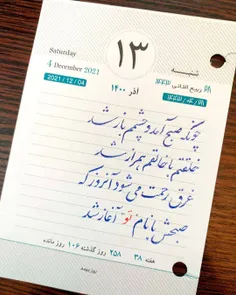 Saturday
4 December 2021
2021 / 12 / 04
۱۳
آذر ۱۴۰۰
شنبه
۲۸ ربیع الثانی
چونکه صبح آمد و چشمم باز شد
خلقتم با خالقم همراز شد
غرق رحمت می شود آنروز که
صبحش با نام تو آغاز شد
هفته ۳۸ ۲۵۸ روز گذشته ۱۰۶ روز مانده